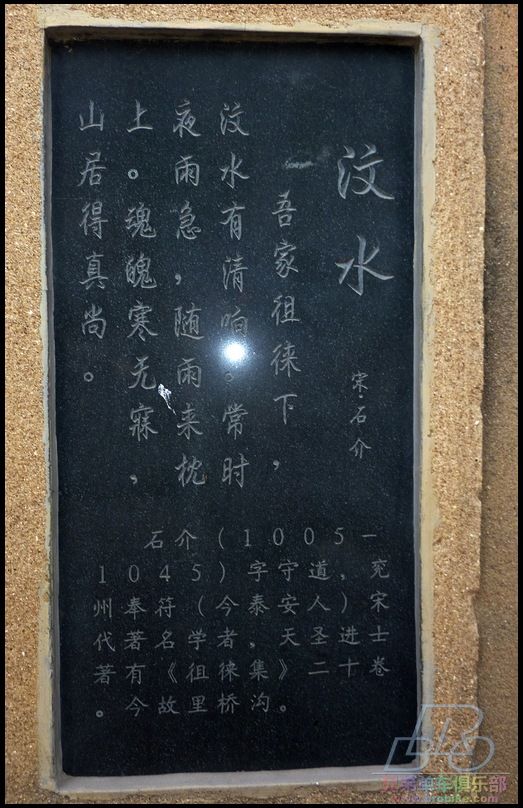 汶水
宋·石介
吾家徂徕下，
汶水有清响。常时
夜雨急，随雨来枕
上。魂魄寒无寐，
山居得真尚。
石介（1005一
1045）字守道，兖
州奉符（今泰安人）宋
代著名学者，天圣进士
著有《徂徕集》二十卷
。今故里桥沟。
车俱乐部